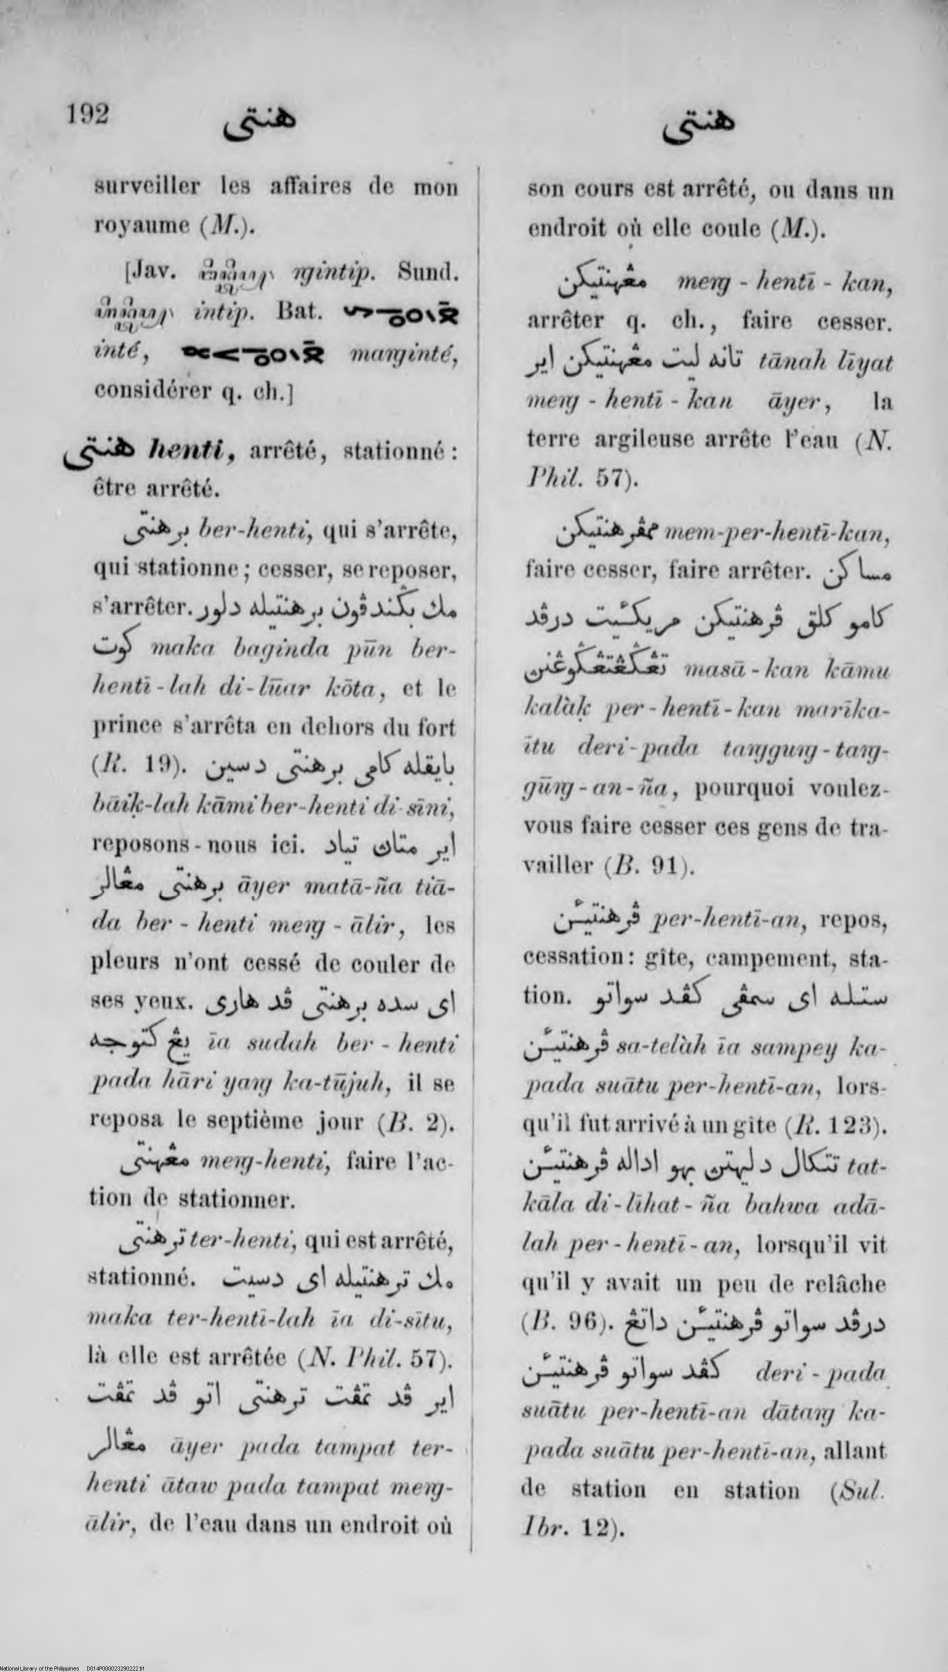 192
هنتي
هنتي
surveiller les affaires de mon
royaume (M.).
[Jav. ngintip. Sund.
intip. Bat.
inté, marginté,
considérer q. ch.]
هنتي henti, arrêté, stationné :
être arrêté.
برهنتي ber-henti, qui s'arrête,
qui stationne ; cesser, se reposer,
s'arrêter. مك بݢندڤون برهنتيله دلور
كوت maka baginda pūn ber-
hentī-lah di-lūar kōta, et le
prince s'arrêta en dehors du fort
(R. 19). بايقله كامي برهنتي دسين
bāiḳ-lah kāmi ber-henti di-sīni,
reposons-nous ici. اير متاڽ تياد
برهنتي مڠالر āyer matā-ña tiā-
da ber-henti meng-ālir, les
pleurs n'ont cessé de couler de
ses yeux. اي سده برهنتي ڤد هاري
يڠ كتوجه īa sudah ber-henti
pada hāri yang ka-tūjuh, il se
reposa le septième jour (B. 2).
مڠهنتي meng-henti, faire l'ac-
tion de stationner.
ترهنتي ter-henti, qui est arrêté,
stationné. مك ترهنتيله اي دسيت
maka ter-hentī-lah īa di-sītu,
là elle est arrêtée (N. Phil. 57).
اير ڤد تمڤت ترهنتي اتو ڤد تمڤت
مڠالر āyer pada tampat ter-
henti ātaw pada tampat meng-
ālir, de l'eau dans un endroit où
son cours est arrêté, ou dans un
endroit où elle coule (M.).
مڠهنتيكن meng-hentī-kan,
arrêter q. ch., faire cesser.
تانه ليت مڠهنتيكن اير tānah līyat
meng-hentī-kan āyer, la
terre argileuse arrête l'eau (N.
Phil. 57).
ممڤرهنتيكن mem-per-hentī-kan,
faire cesser, faire arrêter. مساكن
كامو كلق ڤرهنتيكن مريكئيت درڤد
masā-kan kāmu
kalàḳ per-hentī-kan marīka-
ītu deri-pada tanggung-tang-
gūng-an-ña, pourquoi voulez-
vous faire cesser ces gens de tra-
vailler (B. 91).
ڤرهنتيئن per-hentī-an, repos,
cessation: gîte, campement, sta-
tion. ستله اي سمڤي كڤد سواتو
ڤرهنتيئن sa-telàh īa sampey ka-
pada suātu per-hentī-an, lors-
qu'il fut arrivé à un gîte (R. 123).
تتكال دليهتڽ بهو اداله ڤرهنتيئن tat-
kāla di-līhat-ña bahwa adā-
lah per-hentī-an, lorsqu'il vit
qu'il y avait un peu de relâche
(B. 96). درڤد سواتو ڤرهنتيئن داتڠ
كڤد سواتو ڤرهنتيئن deri-pada
suātu per-hentī-an dātang ka-
pada suātu per-hentī-an, allant
de station en station (Sul.
Ibr. 12).
National Library of the Philippines